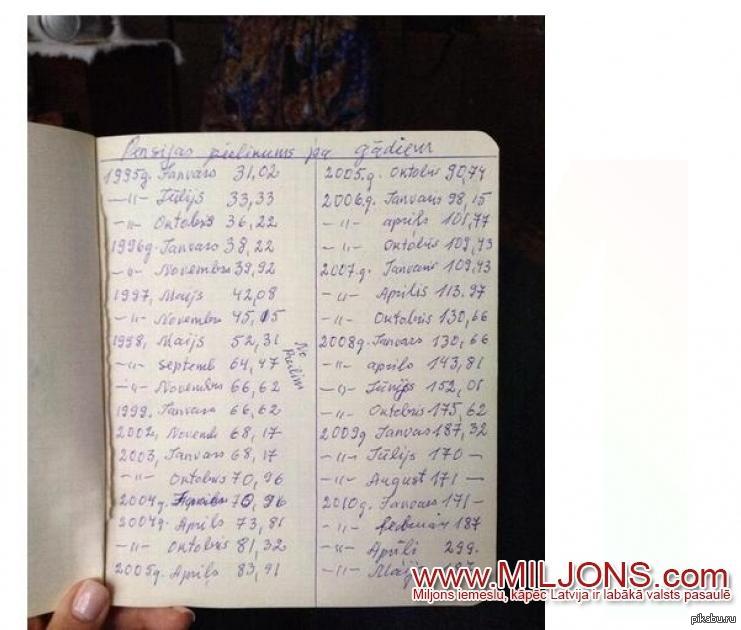 Pensijas pielikums pa gādiem
1995g. Janvaris 31,02
—〃— Jūlijs 33,33
—〃— Oktobris 36,22
1996g. Janvaris 38,22
—〃— Novembris 39,92
1997, Maijs 42,08
—〃— Novembris 45,05
1998, Maijs 52,31
—〃— septemb 64,47
—〃— Novembris 66,62
1999. Janvaris 66,62
2002, Novemb 68,17
2003, Janvaris 68,17
—〃— Oktobris 70,96
2004g. 70,96
2004g. Aprīlis 73,81
—〃— Oktobris 81,32
2005g. Aprīlis 83,91
No
2005.g. Oktobris 90,74
2006.g. Janvaris 98,15
—〃— aprīlis 101,77
—〃— Oktobris 109,73
2007.g. Janvaris 109,43
—〃— Aprīlis 113.97
—〃— Oktobris 130,66
2008g. Janvaris 130,66
—〃— aprīlis 143,81
—〃— Jūnijs 152,01
—〃— Oktobris 175,62
2009g Janvaris 187,32
—〃— Jūlijs 170 —
—〃— August 171 —
2010g. Janvaris 171 —
—〃— februār 187
—〃— Aprīlī 299.
—〃— Maijs
www.MILJONS.com
Miljons iemeslu, kāpēc Latvija ir labākā valsts pasaulē
pikabu.ru